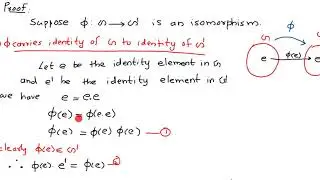 Proof:
Suppose φ: G → G' is an isomorphism.
φ carries identity of G to identity of G'
Let e be the identity element in G
and e' be the identity element in G'
we have e = e.e
φ(e) = φ(e.e)
φ(e) = φ(e) φ(e) — ①
clearly φ(e) ∈ G'
∴ φ(e). e' = φ(e) — ②
G φ G'
e φ(e) e